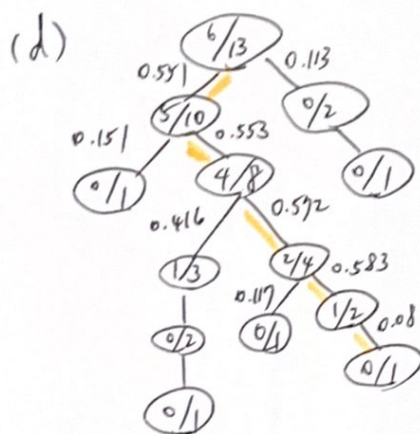 (d)
6/13
0.551 0.113
5/10 0/2
0.151 0.553
0/1 4/8 0/1
0.416 0.592
1/3 2/4 0.583
0.117
0/2 0/1 1/2 0.08
0/1 0/1